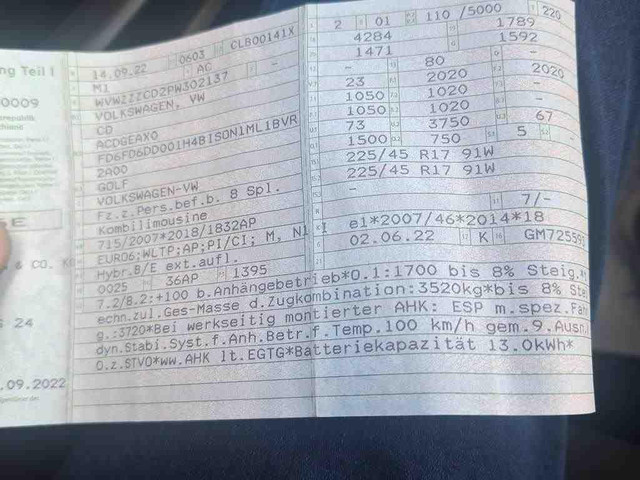 ng Teil I
0009
14.09.22 0603 CLB00141X
M1 AC -
WVWZZZCD2PW302137
VOLKSWAGEN, VW
CD
ACDGEAX0
FD6FD6DD001H4BISON1ML1BVR
2A00
GOLF
VOLKSWAGEN-VW
Fz.z.Pers.bef.b. 8 Spl.
Kombilimousine
715/2007*2018/1832AP
EUR06;WLTP;AP;PI/CI; M, N1 I
Hybr.B/E ext.aufl.
0025 36AP 1395
2 01 110 /5000 220
4284 1789
1471 1592
- 80 -
23 2020 2020
1050 1020 -
1050 1020 -
73 3750 67
1500 750 5 -
225/45 R17 91W
225/45 R17 91W
-
7/-
e1*2007/46*2014*18
02.06.22 K GM725593
7.2/8.2:+100 b.Anhängebetrieb*O.1:1700 bis 8% Steig.*
echn.zul.Ges-Masse d.Zugkombination:3520kg*bis 8% Stei
g.:3720*Bei werkseitig montierter AHK: ESP m.spez.Fah
dyn.Stabi.Syst.f.Anh.Betr.f.Temp.100 km/h gem.9.Ausn
O.z.STVO*ww.AHK lt.EGTG*Batteriekapazität 13.0kWh*
& CO. K
24
.09.2022